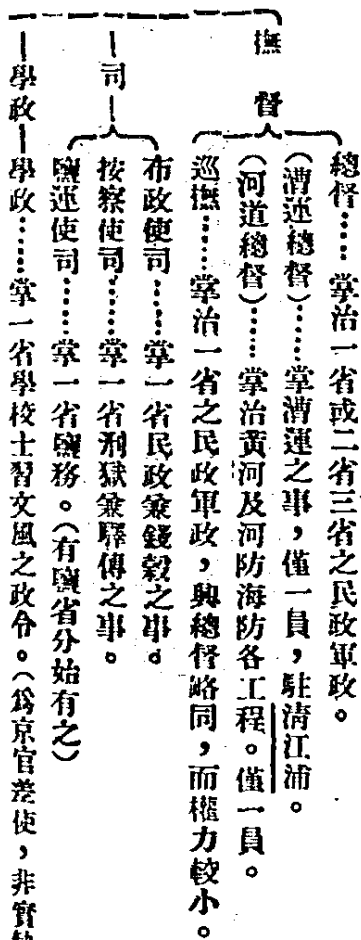 撫督
總督……掌治一省或二省三省之民政軍政。
（漕運總督）……掌漕運之事，僅一員，駐清江浦。
（河道總督）……掌治黃河及河防海防各工程。僅一員。
巡撫……掌治一省之民政軍政，與總督略同，而權力較小。
司
布政使司……掌一省民政兼錢穀之事。
按察使司……掌一省刑獄兼驛傳之事。
鹽運使司……掌一省鹽務。（有鹽省分始有之）
學政—學政……掌一省學校士習文風之政令。（爲京官差使，非實